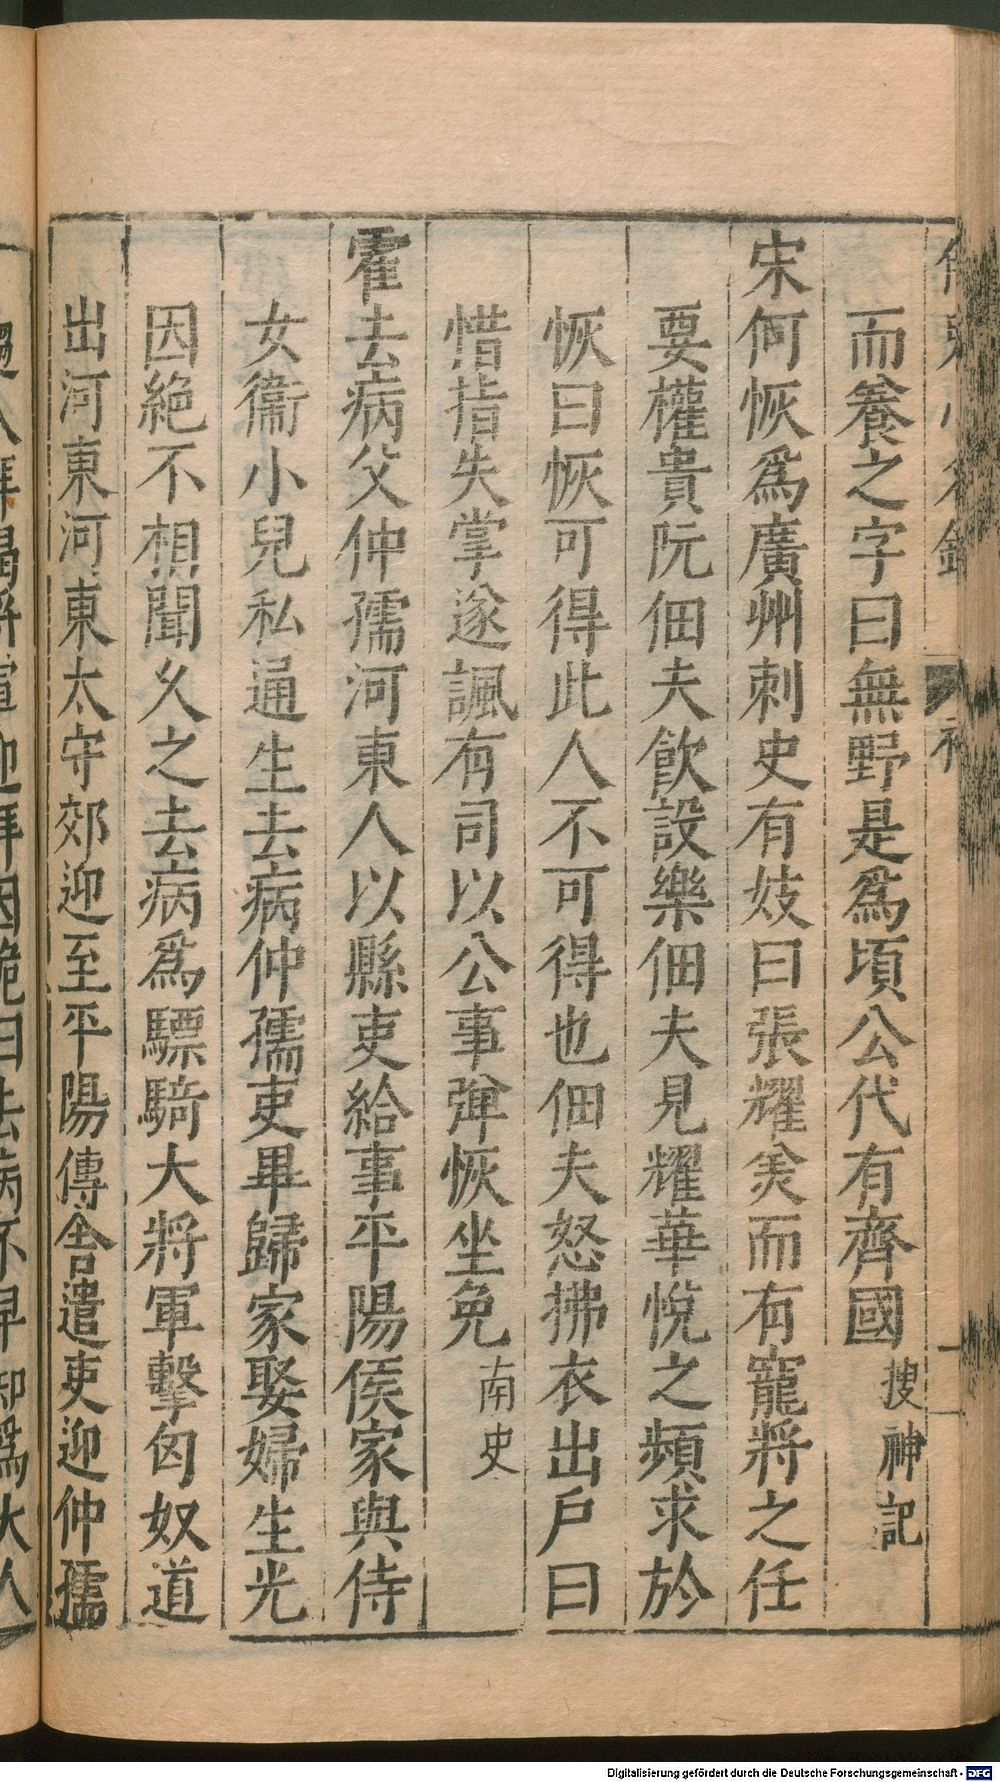 而養之字曰無野是為頃公代有齊國搜神記
宋何恢為廣州刺史有妓曰張耀羙而有寵將之任
要權貴阮佃夫飲設樂佃夫見耀華悅之頻求於
恢曰恢可得此人不可得也佃夫怒拂衣出戶曰
惜指失掌遂諷有司以公事彈恢坐免南史
霍去病父仲孺河東人以縣吏給事平陽侯家與侍
女衞小兒私通生去病仲孺吏畢歸家娶婦生光
因絕不相聞久之去病為驃騎大將軍擊匈奴道
出河東河東太守郊迎至平陽傳舍遣吏迎仲孺
拜謁將軍迎拜因跪曰去病不早知為大人
Digitalisierung gefördert durch die Deutsche Forschungsgemeinschaft - DFG